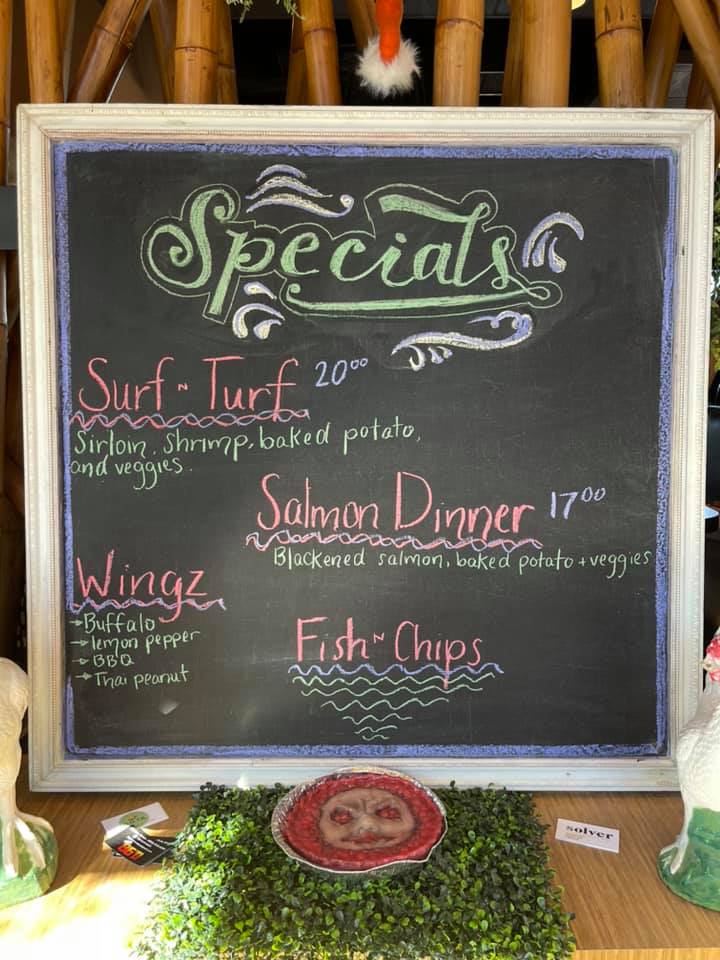 Specials
Surf n Turf 20⁰⁰
Sirloin, shrimp, baked potato,
and veggies.
Salmon Dinner 17⁰⁰
Blackened salmon, baked potato + veggies
Wingz
→Buffalo
→lemon pepper
→BBQ
→Thai peanut
Fish n Chips
solver